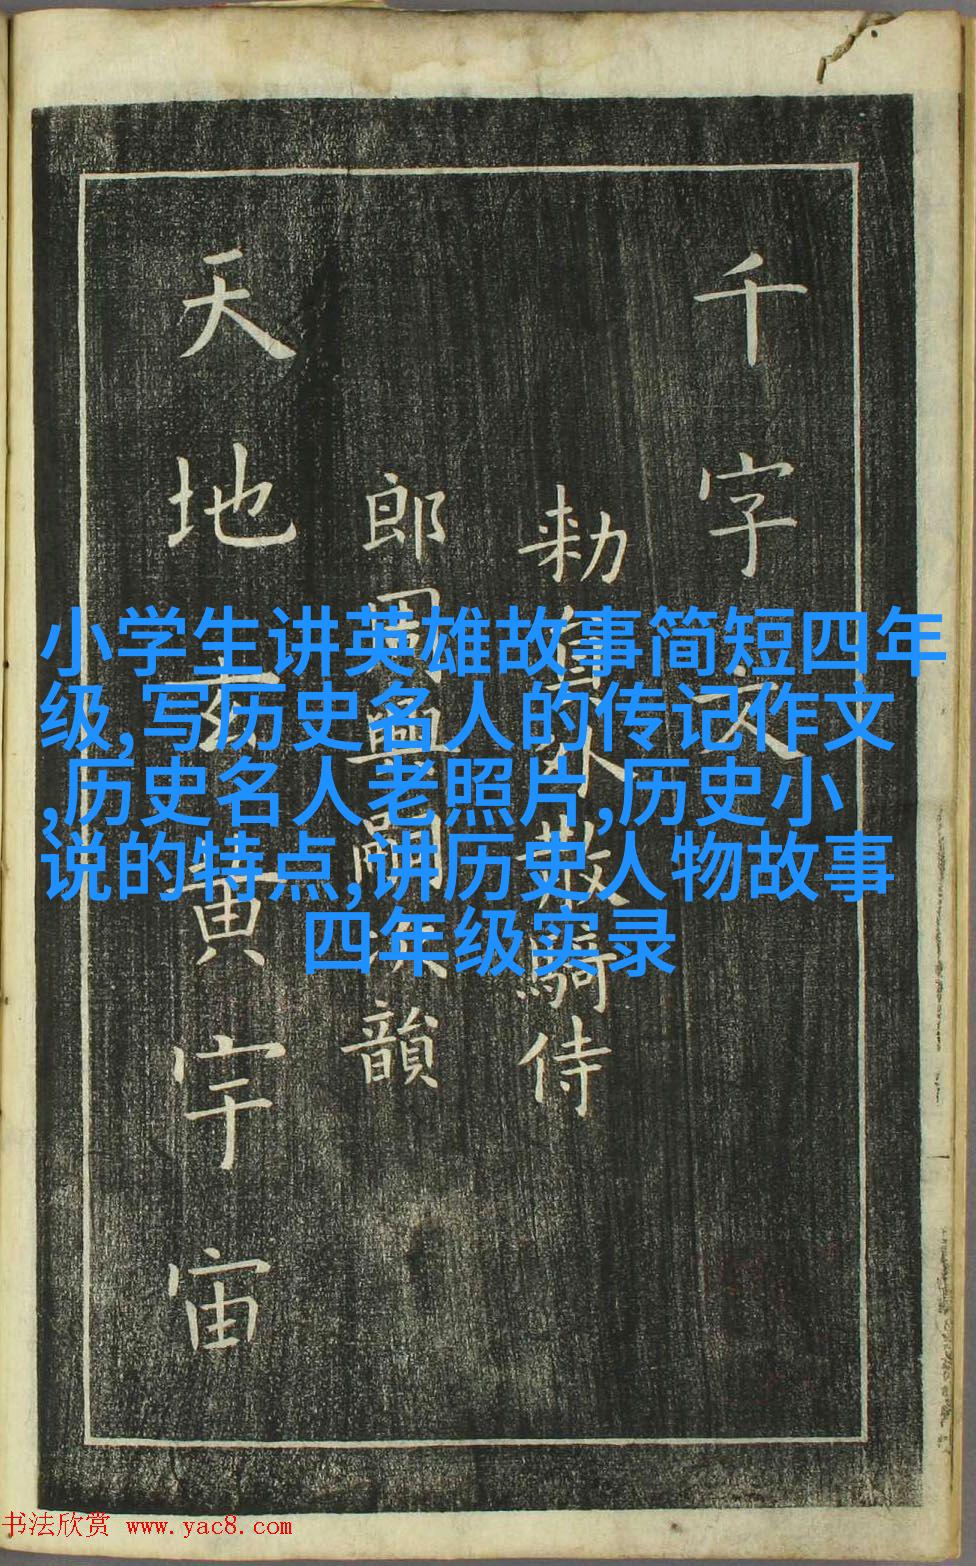 千字文
勑員外散騎侍
郎周興嗣次韻
天地玄黃宇宙
小学生讲英雄故事简短四年
级,写历史名人的传记作文
,历史名人老照片,历史小
说的特点,讲历史人物故事
四年级实录
书法欣赏 www.yac8.com